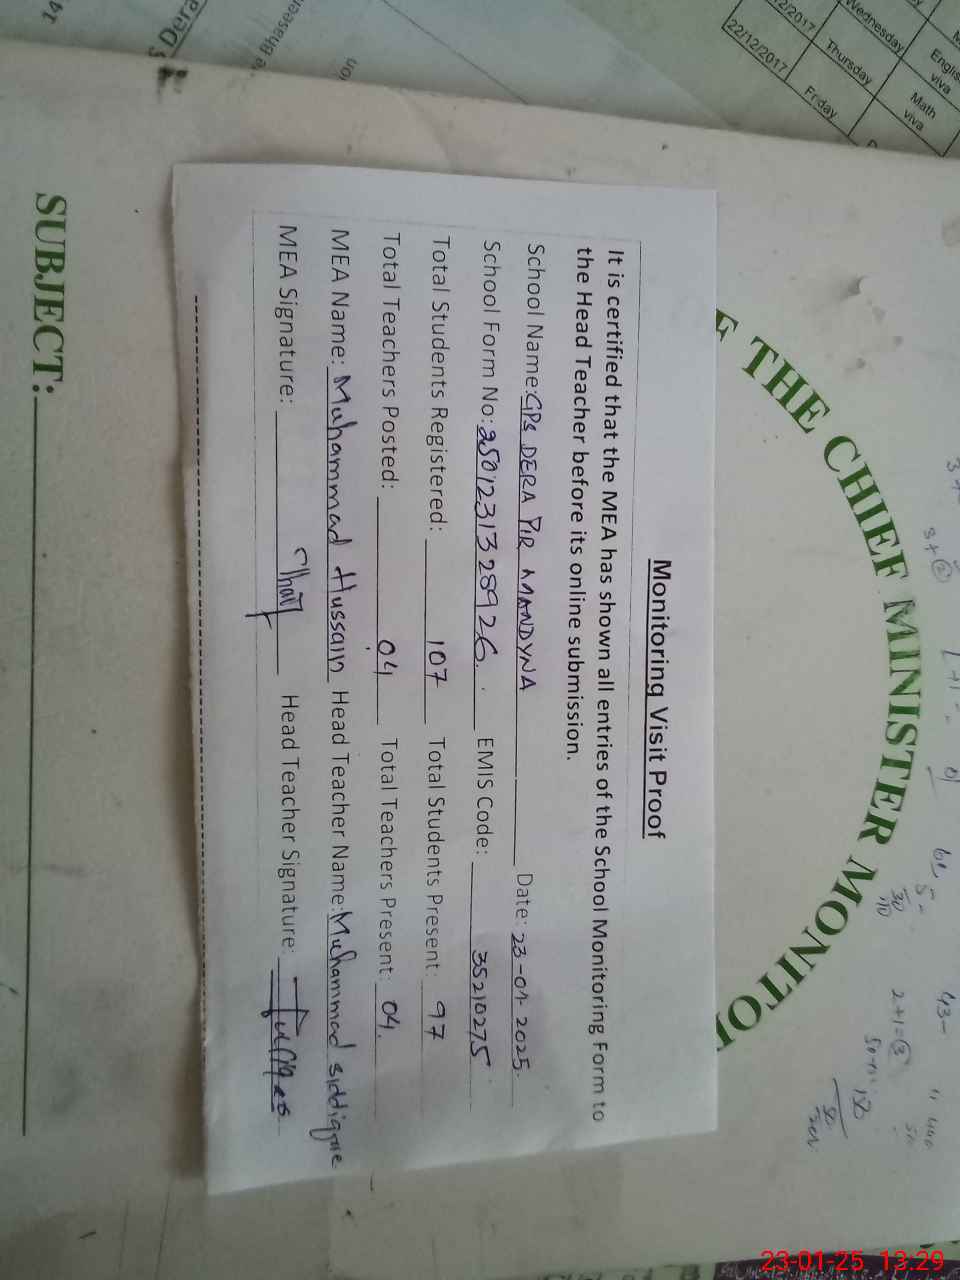 Monitoring Visit Proof
It is certified that the MEA has shown all entries of the School Monitoring Form to
the Head Teacher before its online submission.
School Name: GPS DERA PIR MANDYNA Date: 23-01-2025.
School Form No: 250123131328926. EMIS Code: 35210275
Total Students Registered: 107 Total Students Present: 97
Total Teachers Posted: 04 Total Teachers Present: 04.
MEA Name: Muhammad Hussain Head Teacher Name: Muhammad siddique
MEA Signature: Head Teacher Signature:
THE CHIEF MINISTER MONITO
SUBJECT:
Dera
Bhaseer
14
22/12/2017
Friday
Thursday
Wednesday
Math
viva
Englis
viva
2/2017
2+1=3
43-
23-01-25 13:29